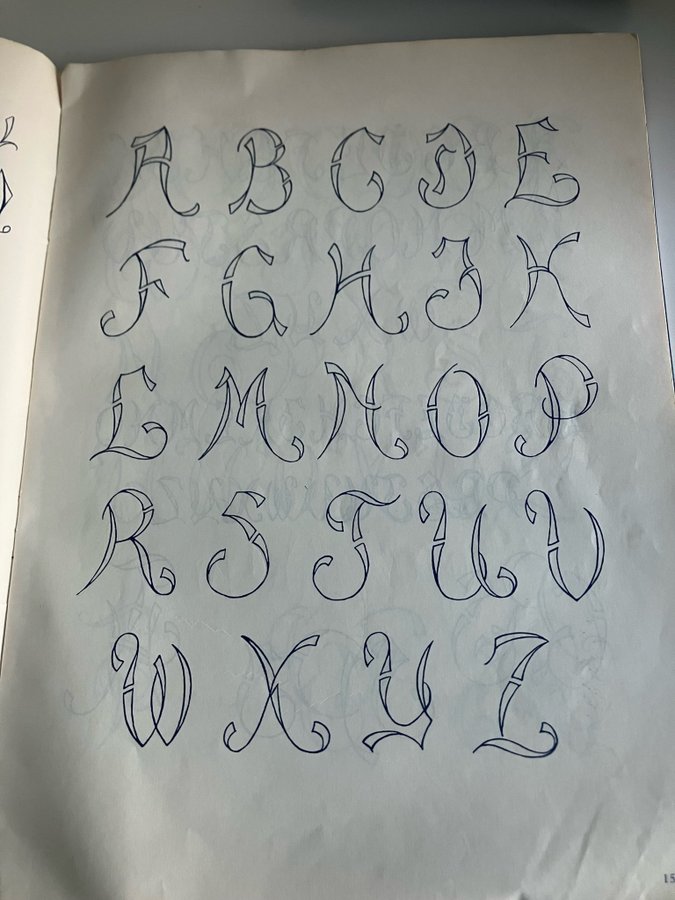 A B C D E
F G H J K
L M N O P
R S T U V
W X Y Z
15